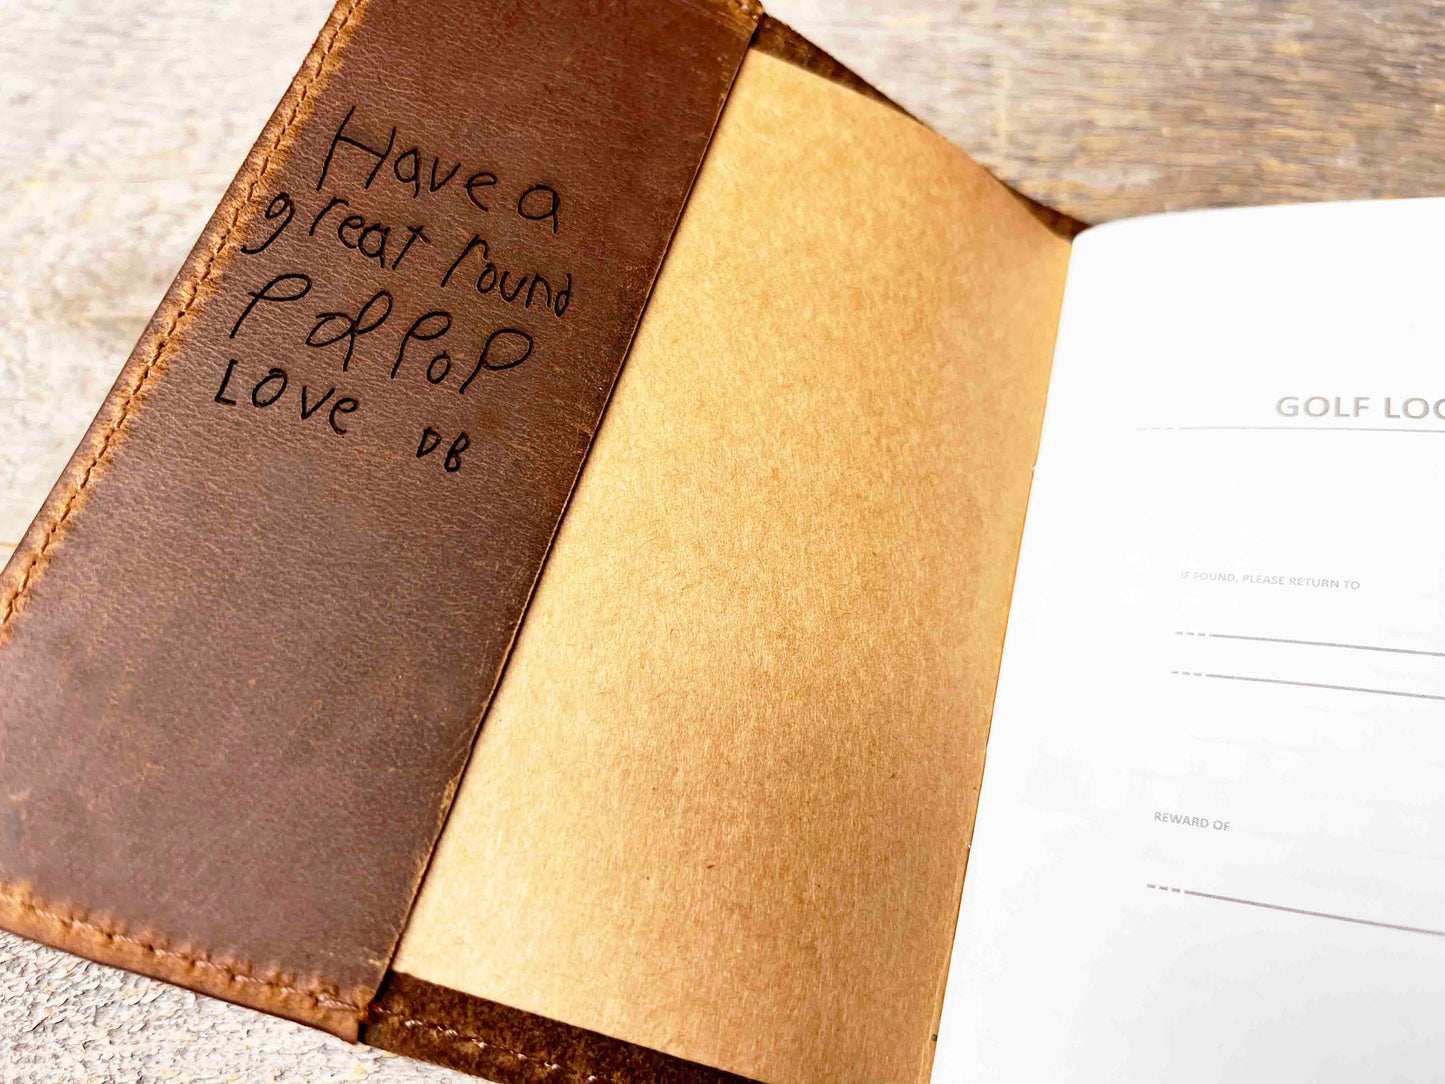 Have a
great round
Pop Pop
Love DB
GOLF LOG
IF FOUND, PLEASE RETURN TO
REWARD OF